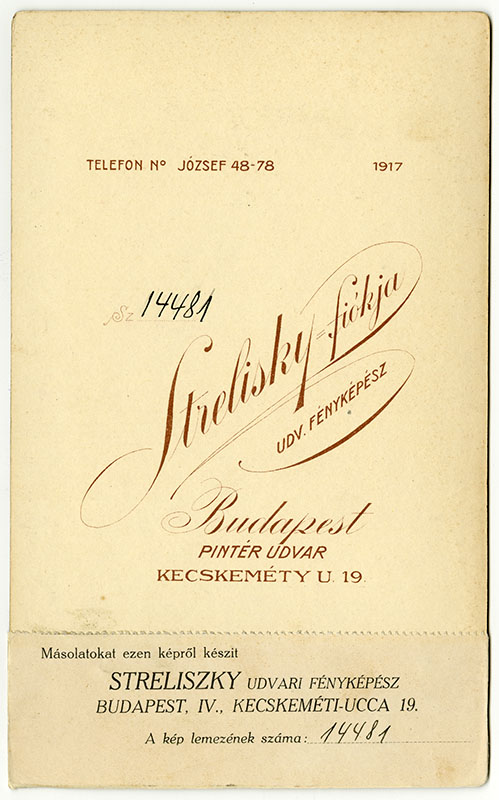 TELEFON Nº JÓZSEF 48-78 1917
Sz 14481
Strelisky=fiókja
UDV. FÉNYKÉPÉSZ
Budapest
PINTÉR UDVAR
KECSKEMÉTY U. 19.
Másolatokat ezen képről készit
STRELISZKY UDVARI FÉNYKÉPÉSZ
BUDAPEST, IV., KECSKEMÉTI-UCCA 19.
A kép lemezének száma: 14481